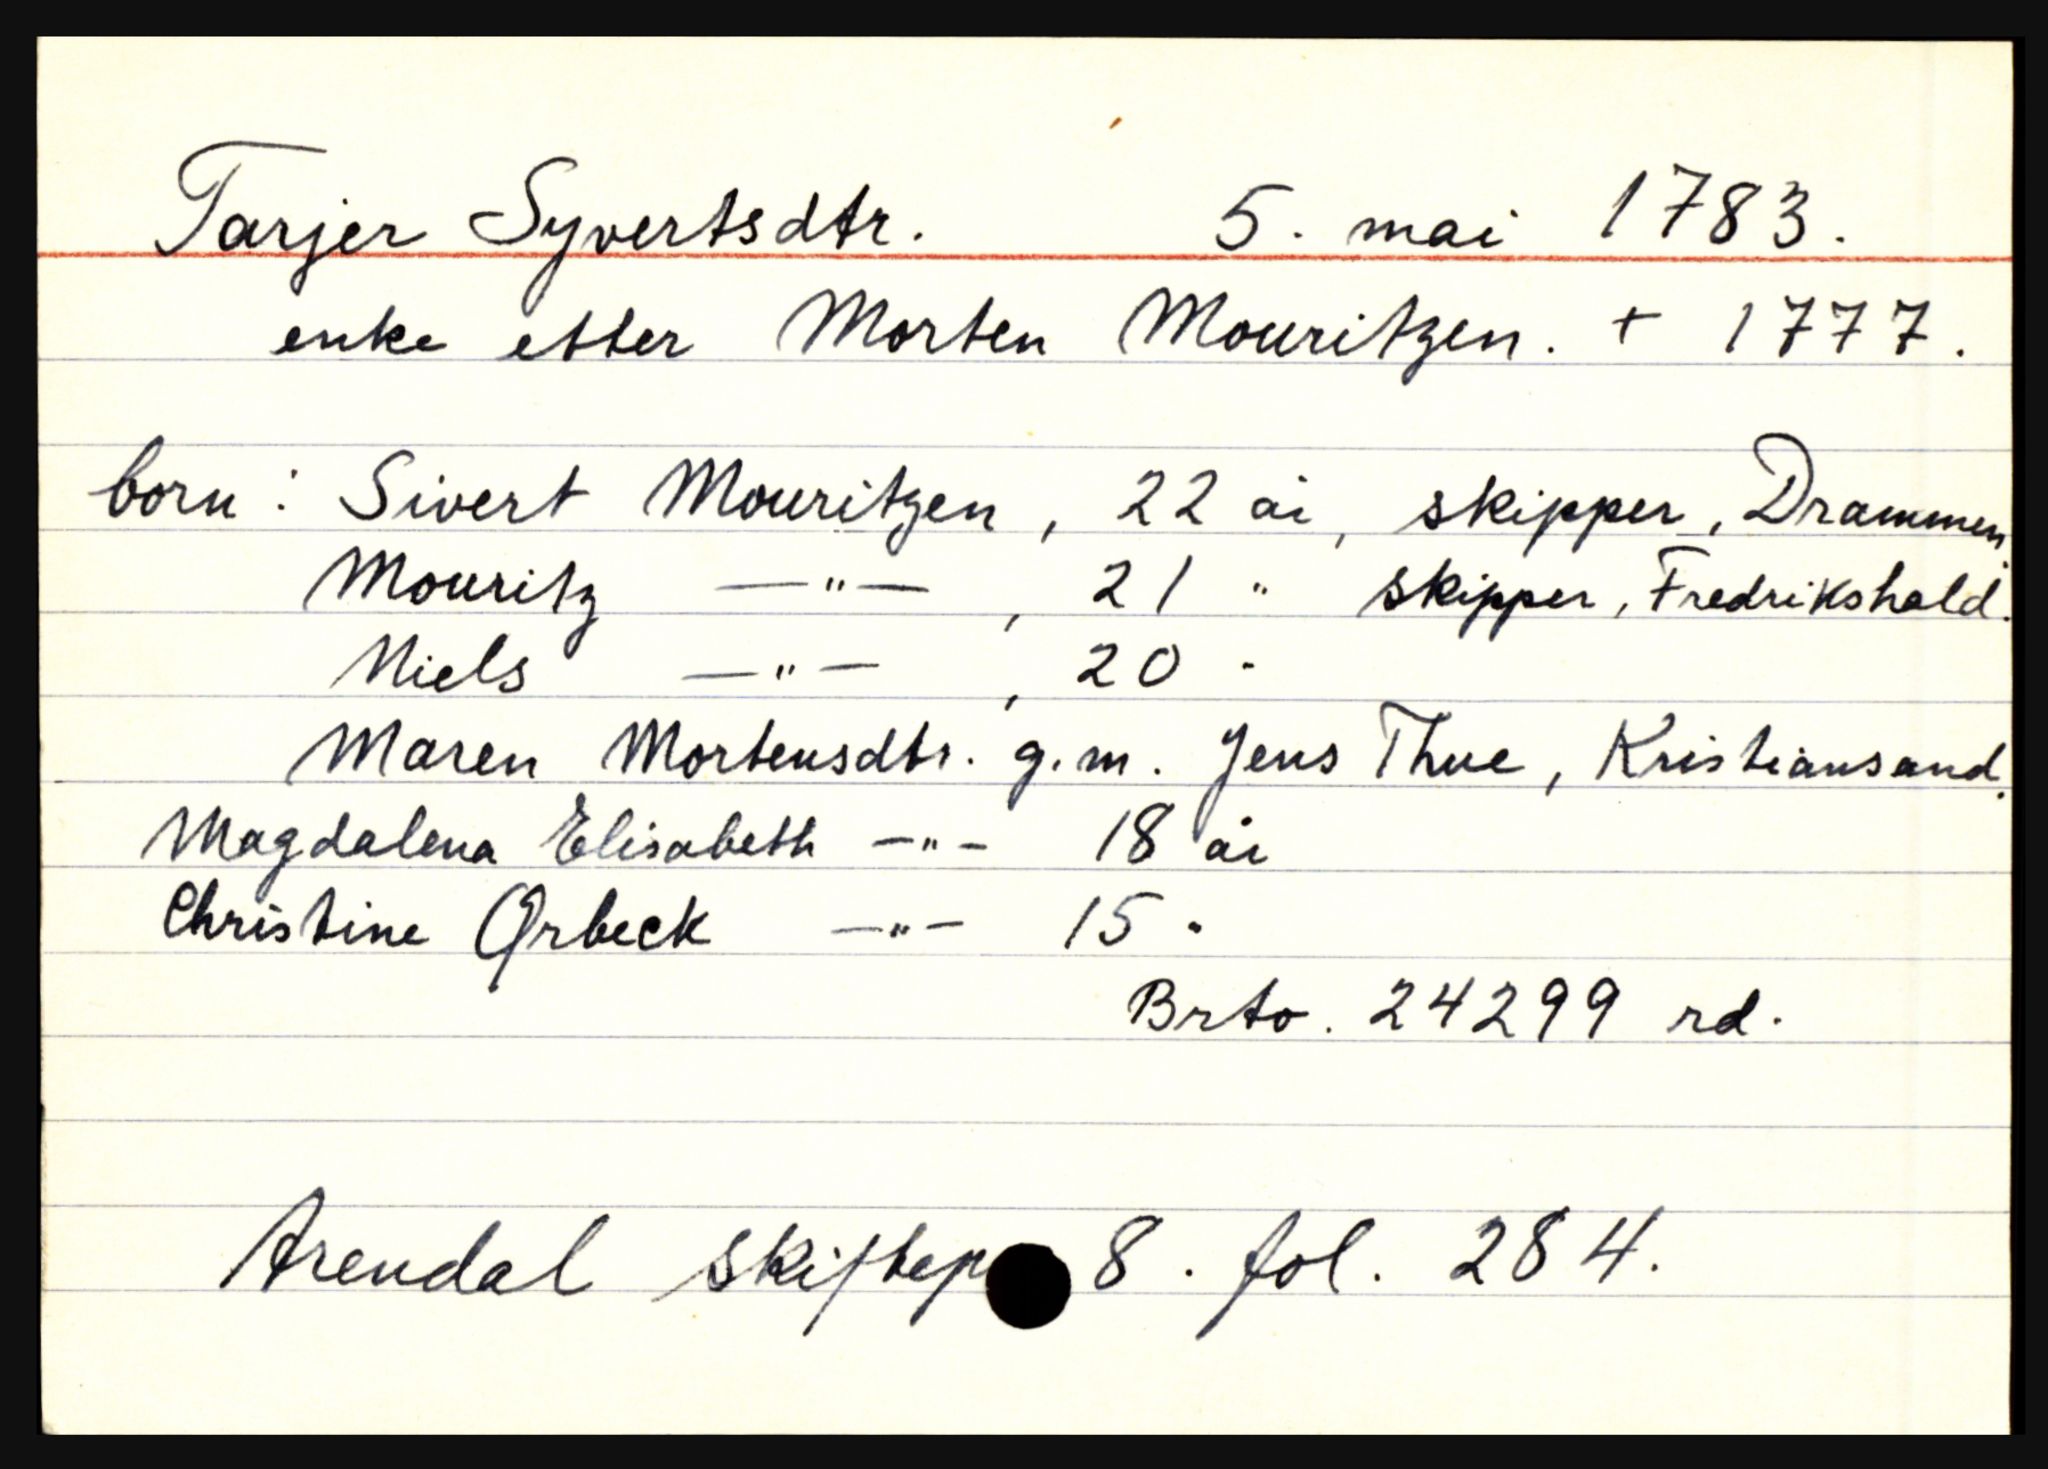 Tarjer Syvertsdtr. 5. mai 1783.
enke etter Morten Mouritzen. + 1777.
born: Sivert Mouritzen, 22 år, skipper, Drammen
Mouritz —"—, 21 " skipper, Fredrikshald.
Niels —"—, 20 "
Maren Mortensdtr. g.m. Jens Thue, Kristiansand.
Magdalena Elisabeth —"— 18 år
Christine Ørbeck —"— 15 "
Brto. 24299 rd.
Arendal skiftep 8. fol. 284.